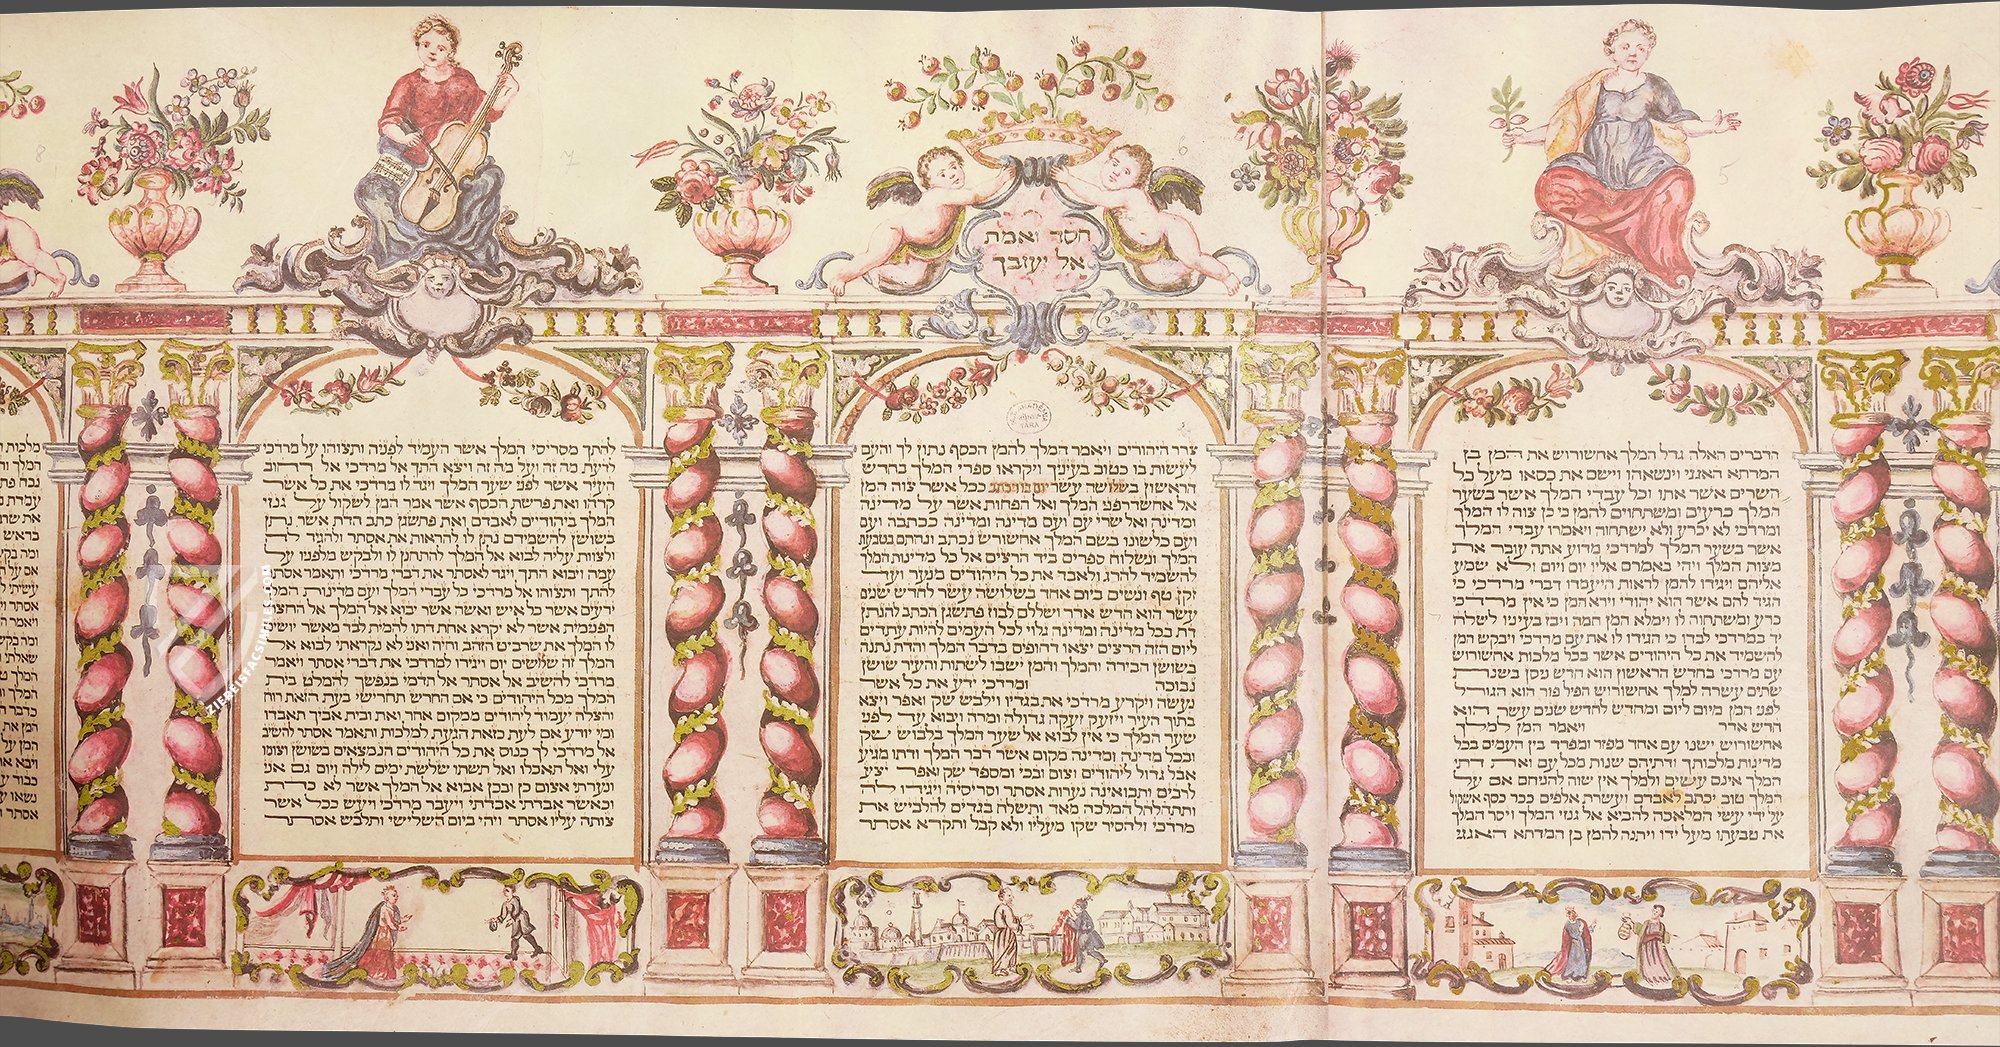 חסד ואמת
אל יעזבך
הדברים האלה גדל המלך אחשורוש את המן בן
המדתא האגגי וינשאהו וישם את כסאו מעל כל
השרים אשר אתו וכל עבדי המלך אשר בשער
המלך כרעים ומשתחוים להמן כי כן צוה לו המלך
ומרדכי לא יכרע ולא ישתחוה ויאמרו עבדי המלך
אשר בשער המלך למרדכי מדוע אתה עובר את
מצות המלך ויהי באמרם אליו יום ויום ולא שמע
אליהם ויגידו להמן לראות היעמדו דברי מרדכי כי
הגיד להם אשר הוא יהודי וירא המן כי אין מרדכי
כרע ומשתחוה לו וימלא המן חמה ויבז בעיניו לשלח
יד במרדכי לבדו כי הגידו לו את עם מרדכי ויבקש המן
להשמיד את כל היהודים אשר בכל מלכות אחשורוש
עם מרדכי בחדש הראשון הוא חדש ניסן בשנת
שתים עשרה למלך אחשורוש הפיל פור הוא הגורל
לפני המן מיום ליום ומחדש לחדש שנים עשר הוא
חדש אדר ויאמר המן למלך
אחשורוש ישנו עם אחד מפזר ומפרד בין העמים בכל
מדינות מלכותך ודתיהם שנות מכל עם ואת דתי
המלך אינם עשים ולמלך אין שוה להניחם אם על
המלך טוב יכתב לאבדם ועשרת אלפים ככר כסף אשקול
על ידי עשי המלאכה להביא אל גנזי המלך ויסר המלך
את טבעתו מעל ידו ויתנה להמן בן המדתא האגגי
צרר היהודים ויאמר המלך להמן הכסף נתון לך והעם
לעשות בו כטוב בעיניך ויקראו ספרי המלך בחדש
הראשון בשלושה עשר יום בו ויכתב ככל אשר צוה המן
אל אחשדרפני המלך ואל הפחות אשר על מדינה
ומדינה ואל שרי עם ועם מדינה ומדינה ככתבה ועם
ועם כלשונו בשם המלך אחשורוש נכתב ונחתם בטבעת
המלך ונשלוח ספרים ביד הרצים אל כל מדינות המלך
להשמיד להרג ולאבד את כל היהודים מנער ועד
זקן טף ונשים ביום אחד בשלושה עשר לחדש שנים
עשר הוא חדש אדר ושללם לבוז פתשגן הכתב להנתן
דת בכל מדינה ומדינה גלוי לכל העמים להיות עתדים
ליום הזה הרצים יצאו דחופים בדבר המלך והדת נתנה
בשושן הבירה והמלך והמן ישבו לשתות והעיר שושן
נבוכה ומרדכי ידע את כל אשר
נעשה ויקרע מרדכי את בגדיו וילבש שק ואפר ויצא
בתוך העיר ויזעק זעקה גדולה ומרה ויבוא עד לפני
שער המלך כי אין לבוא אל שער המלך בלבוש שק
ובכל מדינה ומדינה מקום אשר דבר המלך ודתו מגיע
אבל גדול ליהודים וצום ובכי ומספד שק ואפר יצע
לרבים ותבואינה נערות אסתר וסריסיה ויגידו לה
ותתחלחל המלכה מאד ותשלח בגדים להלביש את
מרדכי ולהסיר שקו מעליו ולא קבל ותקרא אסתר
להתך מסריסי המלך אשר העמיד לפניה ותצוהו על מרדכי
לדעת מה זה ועל מה זה ויצא התך אל מרדכי אל רחוב
העיר אשר לפני שער המלך ויגד לו מרדכי את כל אשר
קרהו ואת פרשת הכסף אשר אמר המן לשקול על גנזי
המלך ביהודיים לאבדם ואת פתשגן כתב הדת אשר נתן
בשושן להשמידם נתן לו להראות את אסתר ולהגיד לה
ולצוות עליה לבוא אל המלך להתחנן לו ולבקש מלפניו על
עמה ויבוא התך ויגד לאסתר את דברי מרדכי ותאמר אסתר
להתך ותצוהו אל מרדכי כל עבדי המלך ועם מדינות המלך
ידעים אשר כל איש ואשה אשר יבוא אל המלך אל החצר
הפנימית אשר לא יקרא אחת דתו להמית לבד מאשר יושיט
לו המלך את שרביט הזהב וחיה ואני לא נקראתי לבוא אל
המלך זה שלושים יום ויגידו למרדכי את דברי אסתר ויאמר
מרדכי להשיב אל אסתר אל תדמי בנפשך להמלט בית
המלך מכל היהודים כי אם החרש תחרישי בעת הזאת רוח
והצלה יעמוד ליהודים ממקום אחר ואת ובית אביך תאבדו
ומי יודע אם לעת כזאת הגעת למלכות ותאמר אסתר להשיב
אל מרדכי לך כנוס את כל היהודים הנמצאים בשושן וצומו
עלי ואל תאכלו ואל תשתו שלשת ימים לילה ויום גם אני
ונערתי אצום כן ובכן אבוא אל המלך אשר לא כדת
וכאשר אבדתי אבדתי ויעבר מרדכי ויעש ככל אשר
צותה עליו אסתר ויהי ביום השלישי ותלבש אסתר
ZIEREISFACSIMILES.COM